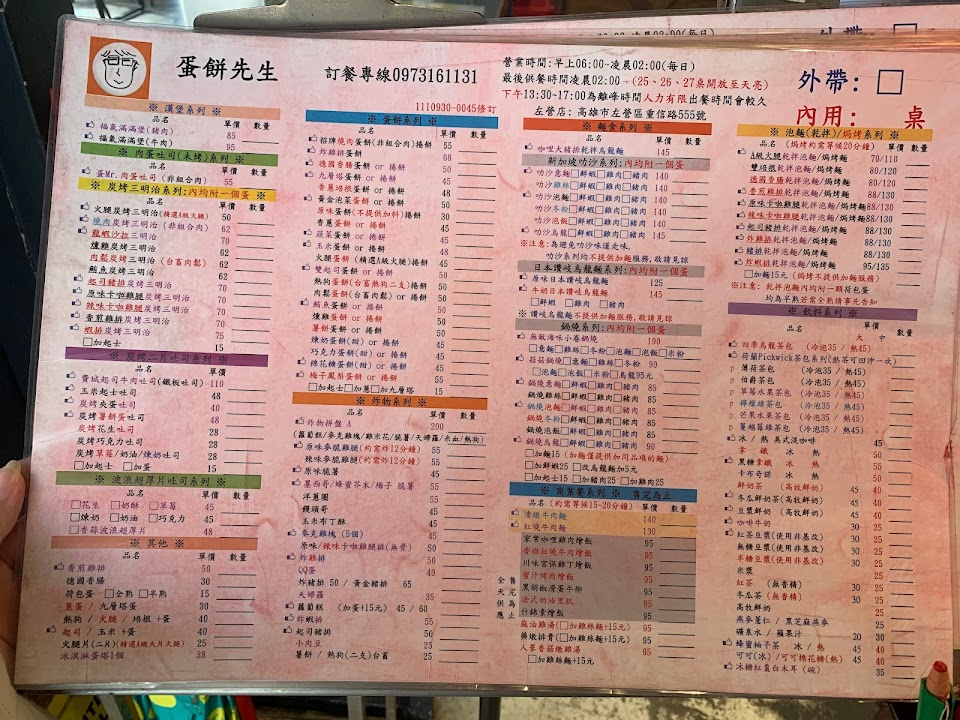 蛋餅先生
訂餐專線0973161131
1110930-0045修訂
營業時間:早上06:00~凌晨02:00(每日)
最後供餐時間凌晨02:00 - (25、26、27桌開放至天亮)
下午13:30~17:00為離峰時間人力有限出餐時間會較久
左營店: 高雄市左營區重信路555號
外帶: □
內用: 桌
※ 漢堡系列 ※
品名 單價 數量
福氣滿滿堡(豬肉) 85
福氣滿滿堡(牛肉) 95
※ 肉蛋吐司(未烤)系列 ※
蛋Mr.肉蛋吐司 (非組合肉) 55
※ 炭烤三明治系列:內均附一個蛋 ※
品名 單價 數量
火腿炭烤三明治(精選A級火腿) 50
燒肉炭烤三明治 (非組合肉) 62
龍蝦沙拉三明治 70
燻雞炭烤三明治
肉鬆炭烤三明治 (台畜肉鬆)
鮪魚炭烤三明治
起司豬排炭烤三明治
原味卡啦雞腿炭烤三明治
辣味卡啦雞腿炭烤三明治
香煎雞排炭烤三明治
蝦排炭烤三明治 75
□加起士 15
※ 炭烤二片吐司系列 ※
品名 單價 數量
費城起司牛肉吐司(鐵板吐司) 110
玉米起士吐司 48
炭烤夾蛋吐司 40
炭烤薯餅蛋吐司 48
炭烤花生吐司 28
炭烤巧克力吐司 28
炭烤草莓/奶油/煉奶吐司 28
□加起士 □加蛋 15
※ 波浪超厚片吐司系列 ※
品名 單價 數量
□花生 □奶酥 □草莓 45
□煉奶 □奶油 □巧克力 45
□香蒜波浪超厚片 48
※ 其他 ※
品名 單價 數量
香煎雞排 50
德國香腸 30
荷包蛋 □全熟 □半熟 15
蔥蛋 / 九層塔蛋 30
熱狗 / 火腿 / 培根 +蛋 40
起司 / 玉米 +蛋 40
火腿片(二片)(精選A級大片火腿) 25
冰淇淋蛋塔1個 38
※ 蛋餅系列 ※
品名 單價 數量
招牌燒肉蛋餅(非組合肉)捲餅
炸雞排蛋餅 68
德國香腸蛋餅 or 捲餅
叻沙蛋餅 or 捲餅
九層塔蛋餅 or 捲餅
香蔥培根蛋餅 or 捲餅
黃金泡菜蛋餅 or 捲餅
原味蛋餅(不提供加料) 捲餅 30
香蔥蛋餅 or 捲餅
蔬菜蛋餅 or 捲餅
玉米蛋餅 or 捲餅
火腿蛋餅 (精選A級火腿)捲餅
雙起司蛋餅 or 捲餅
熱狗蛋餅(台畜熱狗二支)捲餅
肉鬆蛋餅(台畜肉鬆) or 捲餅
鮪魚蛋餅 or 捲餅
燻雞蛋餅 or 捲餅
薯餅蛋餅 or 捲餅
煉奶蛋餅(甜) or 捲餅
巧克力蛋餅(甜) or 捲餅
棉花糖蛋餅(甜) or 捲餅
梅子鳳梨蛋餅 or 捲餅
□加起士□加蔥□加九層塔 15
※ 炸物系列 ※
品名 單價 數量
炸物拼盤 A 200
(蘿蔔糕/麥克雞塊/雞米花/脆薯/天婦羅/米血/熱狗)
原味麥脆雞腿(約需炸12分鐘) 55
辣味麥脆雞腿(約需炸12分鐘) 55
原味脆薯
墨西哥/蜂蜜芥末/梅子 脆薯
洋蔥圈
饅頭哥
玉米布丁酥
麥克雞塊 (5個)
原味/辣味卡啦雞腿排(無骨)
炸雞排
QQ蛋 40
炸豬排 50 / 黃金豬排 65
天婦羅 35
蘿蔔糕 (加蛋+15元) 45 / 60
炸蝦排 55
起司豬排 50
小肉豆
薯餅 / 熱狗(二支)台畜
※ 麵食系列 ※
品名 單價 數量
咖哩大豬排乾拌烏龍麵 145
新加坡叻沙系列:內均附一個蛋
叻沙意麵□鮮蝦□雞肉□豬肉 145
叻沙雞絲□鮮蝦□雞肉□豬肉
叻沙泡麵□鮮蝦□雞肉□豬肉
叻沙冬粉□鮮蝦□雞肉□豬肉 140
叻沙泡飯□鮮蝦□雞肉□豬肉 145
叻沙烏龍□鮮蝦□雞肉□豬肉 145
※注意: 為避免叻沙味道走味,
叻沙系列均不提供加麵服務,敬請見諒
日本讚岐烏龍麵系列:內均附一個蛋
原味日本讚岐烏龍麵
牛奶日本讚岐烏龍麵
□鮮蝦 □雞肉 □豬肉
※ 讚岐烏龍麵不提供加麵服務,敬請見諒
鍋燒系列:內均附一個蛋
無敵海味小卷鍋燒 190
□意麵□雞絲□冬粉□泡麵□泡飯□米粉
菇菇鍋燒□意麵□雞絲□冬粉 90
□泡麵□泡飯□米粉□烏龍95元
鍋燒意麵□鮮蝦□雞肉□豬肉 85
鍋燒雞絲□鮮蝦□雞肉□豬肉 85
鍋燒泡麵□鮮蝦□雞肉□豬肉
鍋燒冬粉□鮮蝦□雞肉□豬肉
鍋燒泡飯□鮮蝦□雞肉□豬肉 90
鍋燒烏龍□鮮蝦□雞肉□豬肉
□加麵15 (加麵僅提供加同品項的麵)
□加鮮蝦25 □改烏龍麵加5元
□加豬肉25 □加雞肉25元
※ 商業餐系列 ※ 售完為止
品名 (約需等候15-20分鐘) 單價 數量
清燉牛肉麵 140
紅燒牛肉麵 130
家常咖哩雞肉燴飯 95
香咖紅燒牛肉燴飯 95
川味宮保雞丁燴飯 95
蜜汁烤肉燴飯 95
黑胡椒滑蛋牛柳 95
法式奶油里肌 95
什錦素燴 95
麻油雞湯(□加雞絲麵+15元) 95
藥燉排骨(□加雞絲麵+15元) 95
人蔘香菇燉雞湯 95
□加雞絲麵+15元
全天供應
售完為止
※ 泡麵(乾拌)/焗烤系列 ※
品名 (焗烤約需等候20分鐘) 單價 數量
A級火腿乾拌泡麵/焗烤麵 70/110
雙培根乾拌泡麵/焗烤麵 80/120
德國香腸乾拌泡麵/焗烤麵 80/120
香煎雞排乾拌泡麵/焗烤麵 88/130
原味卡啦雞腿乾拌泡麵/焗烤麵 88/130
辣味卡啦雞腿乾拌泡麵/焗烤麵 88/130
起司豬排乾拌泡麵/焗烤麵 88/130
炸雞排乾拌泡麵/焗烤麵 88/130
豬排乾拌泡麵/焗烤麵 88/130
炸蝦排乾拌泡麵/焗烤麵 95/135
□加麵15元 (焗烤不提供加麵服務)
※注意: 乾拌泡麵內均附一顆荷包蛋
均為半熟若需全熟請事先告知
※ 飲料系列 ※
品名 大 中
四季烏龍茶包 (冷泡35 / 熱45)
荷蘭Pickwick茶包系列(熱茶可回沖一次)
薄荷茶包 (冷泡35 / 熱45)
伯爵茶包 (冷泡35 / 熱45)
草莓冰果茶包 (冷泡35 / 熱45)
檸檬綠茶包 (冷泡35 / 熱45)
芒果冰果茶包 (冷泡35 / 熱45)
蔓越莓綠茶包 (冷泡35 / 熱45)
冰 / 熱 美式淡咖啡 45
拿鐵 冰 熱
黑糖拿鐵 冰 熱
卡布奇諾 冰 熱
鮮奶茶 (高牧鮮奶)
冬瓜鮮奶茶(高牧鮮奶)
豆漿鮮奶 (高牧鮮奶)
咖啡牛奶
紅茶豆漿(使用非基改)
無糖豆漿(使用非基改)
半糖豆漿(使用非基改)
米漿
紅茶 (無香精)
冬瓜茶 (無香精)
高牧鮮奶
燕麥薏仁 / 黑芝麻燕麥
礦泉水 / 蘋果汁 20 30
蜂蜜柚子茶 冰 / 熱 45 40
可可(冰) /可可棉花糖(熱) 45 40
冰糖紅棗白木耳 (碗) 35